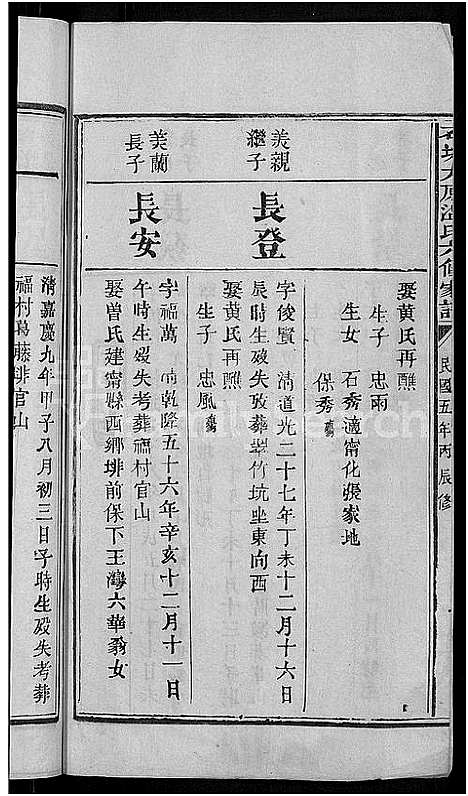 太原溫氏六修家譜
民國五年丙辰修
娶黃氏再醮
生子 忠雨
保秀
生女 石秀適甯化張家地
美親
繼子
長登
字俊賢 清道光二十七年丁未十二月十六日
辰時生歿失攷葬翠竹坑坐東向西
娶黃氏再醮
生子 忠風
美蘭
長子
長安
字福萬 清乾隆五十六年辛亥十二月十一日
午時生歿失考葬福村官山
娶曾氏建甯縣西鄉排前保下王灣六華翁女
清嘉慶九年甲子八月初三日子時生歿失考葬
福村葛藤排官山